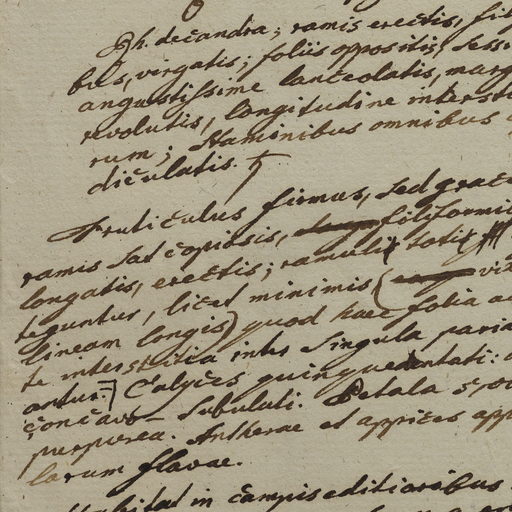 Rh. decandra; ramis erectis, fili
bus, virgatis; foliis oppositis, sessi
angustissime lanceolatis, marg
revolutis, longitudine interst
rum; staminibus omnibus
diculatis.
Fruticulus firmus, sed grac
ramis sat copiosis, filiformi
longatis, erectis; ramuli toti
teguntur, licet minimis (vix
lineam longis) quod haec folia ae
te interstitia inter singula paria
antur. Calyces quinquedentati:
concavo-subulati. Petala
purpurea. Antherae et appices app
larum flavae.
Habitat in campis editioribus